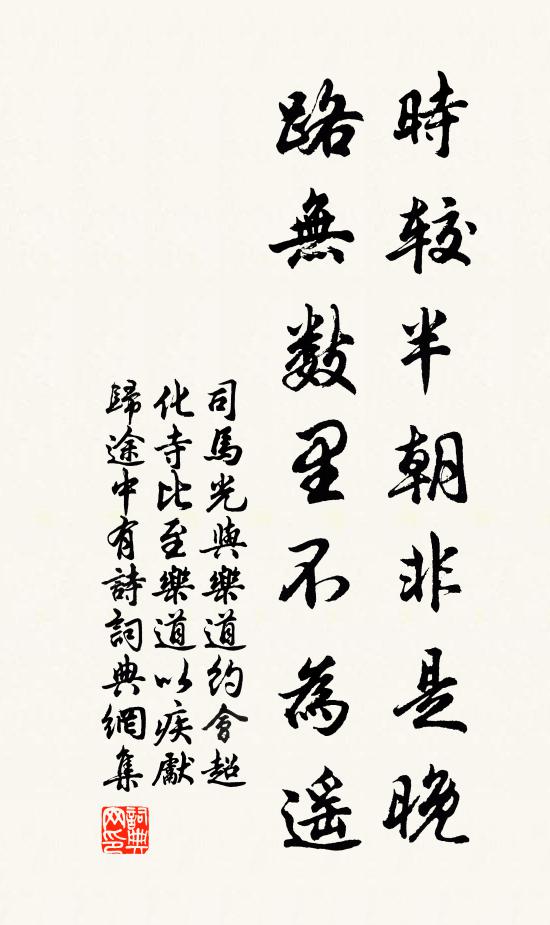 時較半朝非是晚
路無數里不為遥
司馬光與樂道約會超
化寺比至樂道以疾獻
歸途中有詩詞典網集
詞典
网印